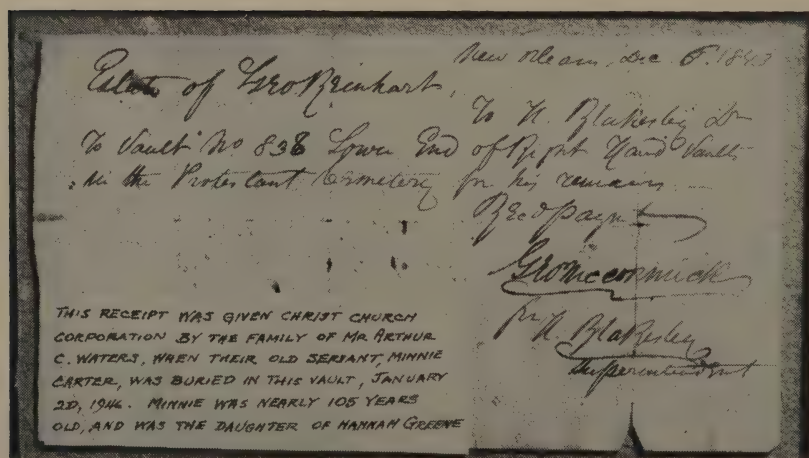 New Orleans, Dec 6. 1843
Estate of Geo Reinhart,
To N. Blakesley Dr
To Vault No 838 Lower End of Right Hand Vaults
in the Protestant Cemetery for his remains
Rec'd paym't
Geo McCormick
for N. Blakesley
Superintendent
THIS RECEIPT WAS GIVEN CHRIST CHURCH
CORPORATION BY THE FAMILY OF MR ARTHUR
C. WATERS, WHEN THEIR OLD SERVANT, MINNIE
CARTER, WAS BURIED IN THIS VAULT, JANUARY
2D, 1946. MINNIE WAS NEARLY 105 YEARS
OLD, AND WAS THE DAUGHTER OF HANNAH GREENE